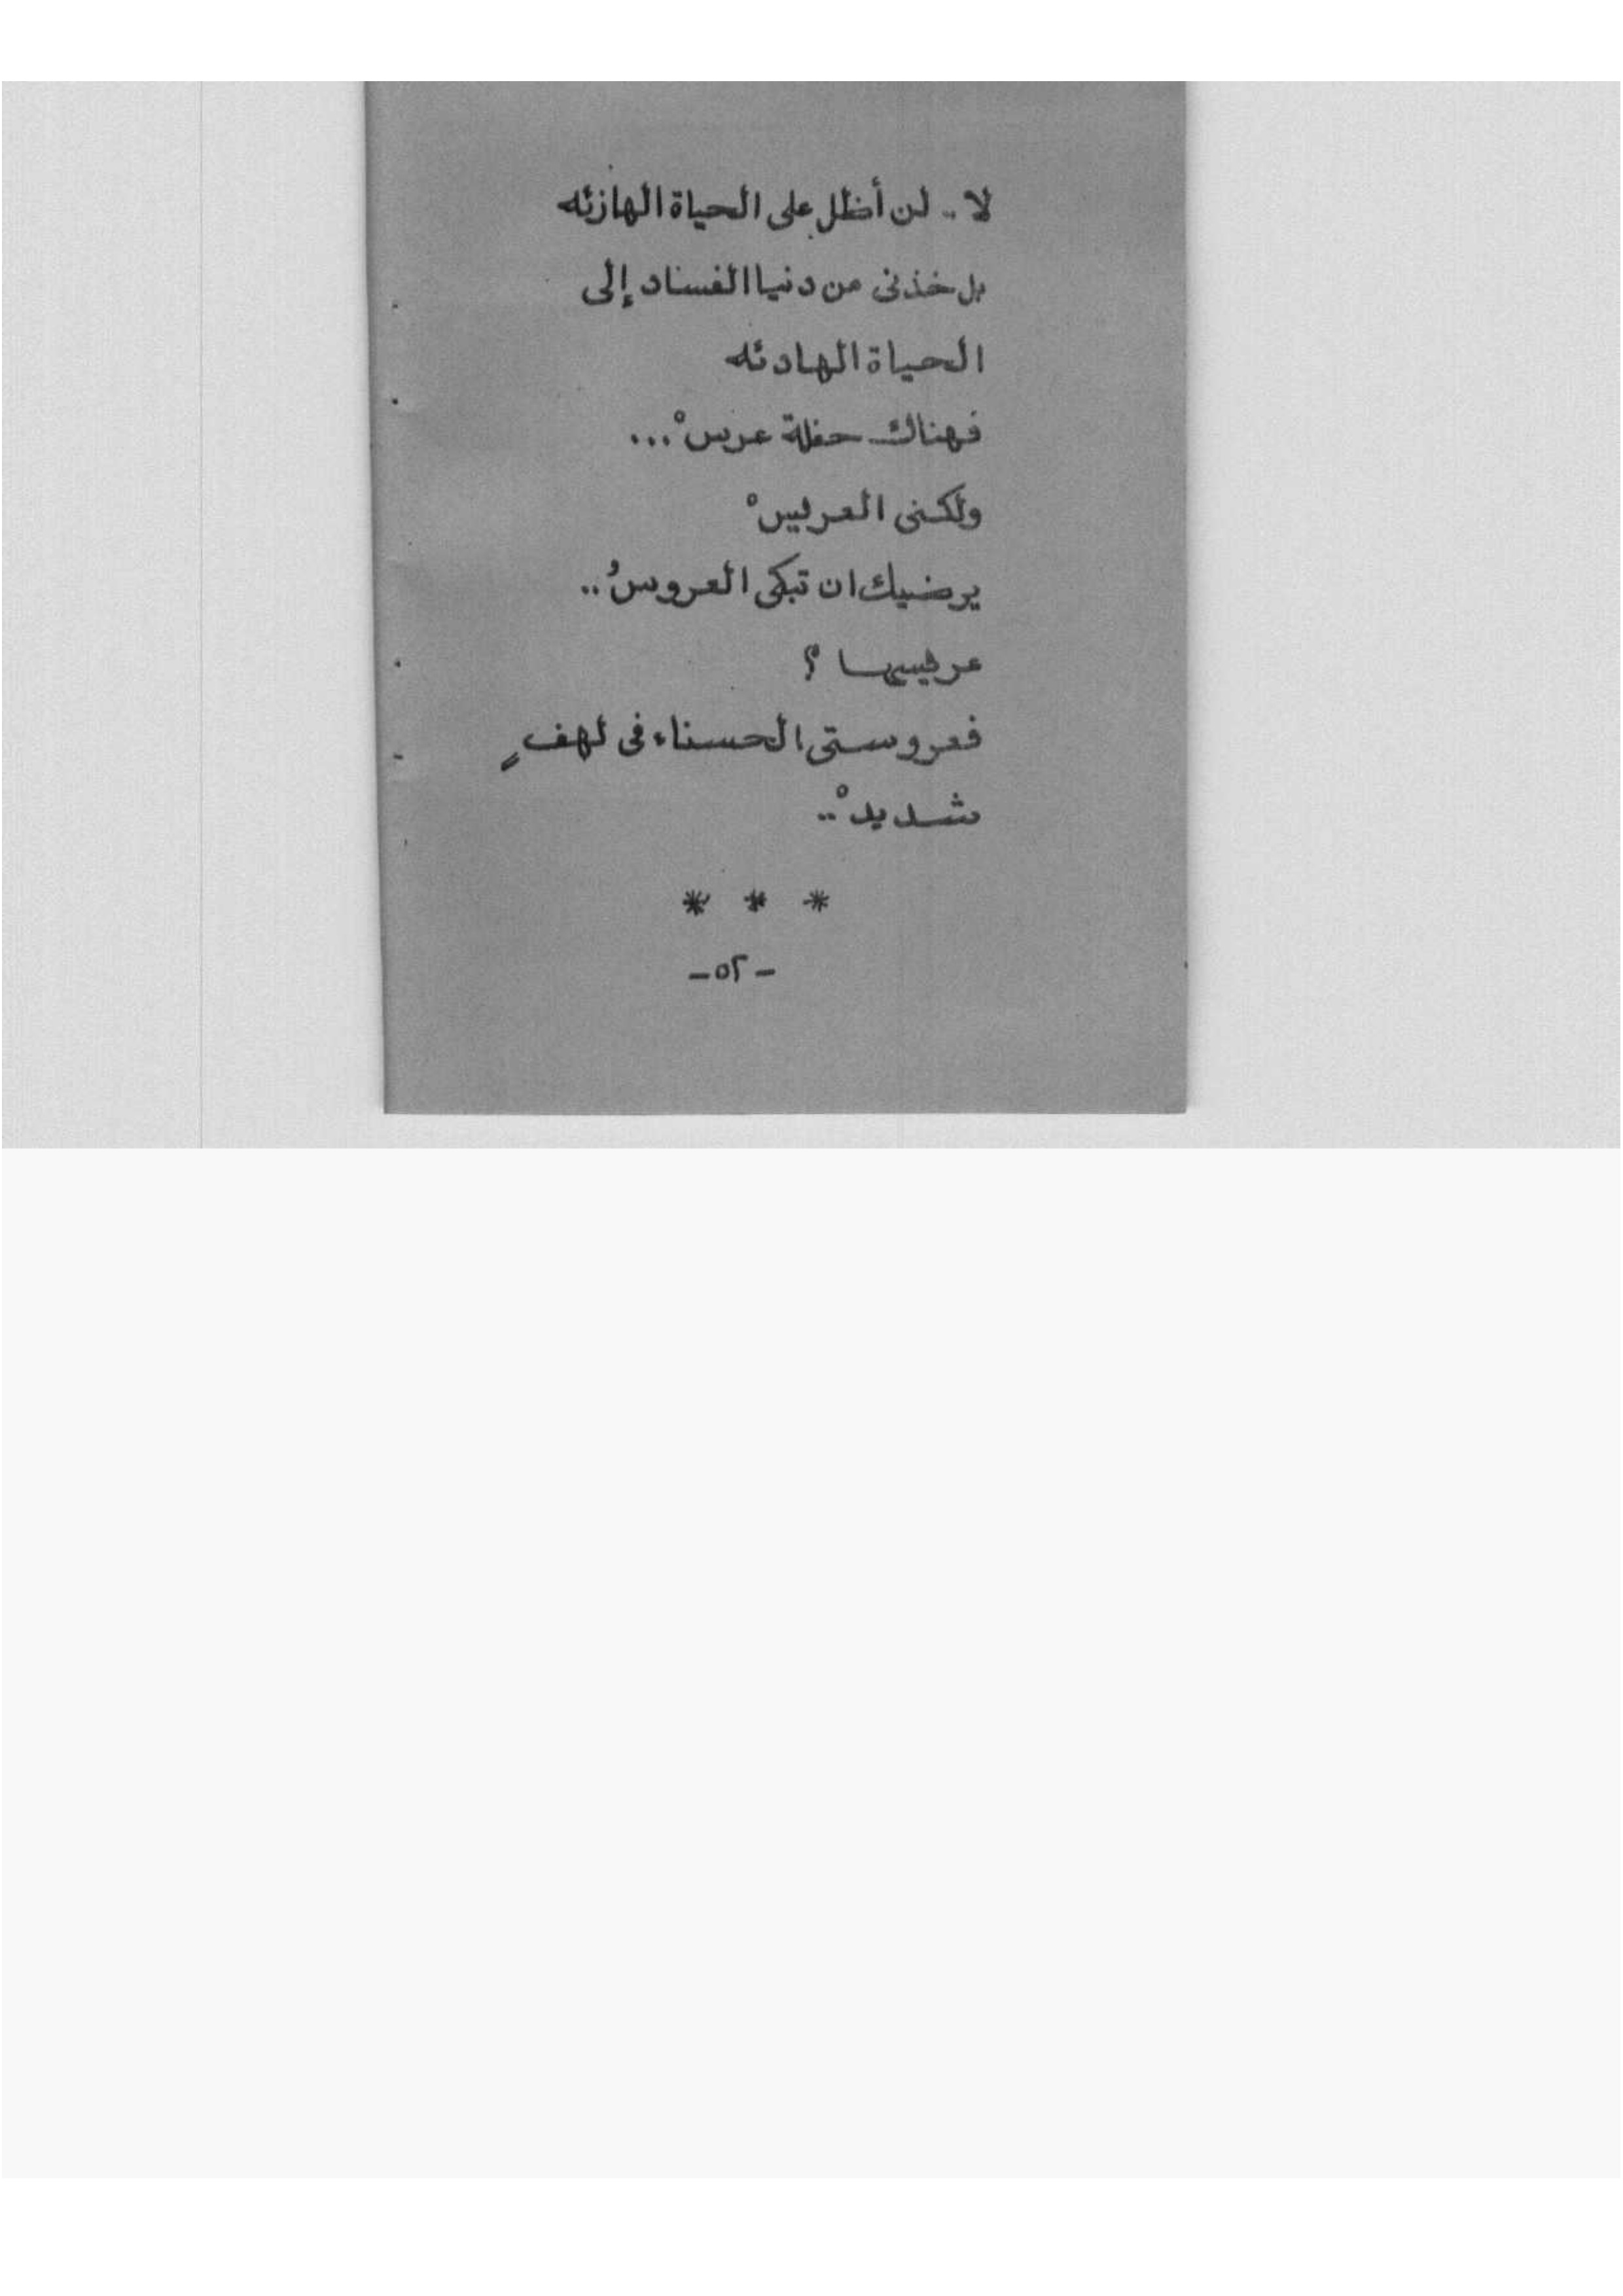 لا .. لن أظل على الحياة الهازئه
بل خذنى من دنيا الفساد إلى
الحياة الهادئه
فهناك حفلة عرسْ ...
ولكنى العريسْ
يرضيك ان تبكى العروسُ ..
عريسها ؟
فعروستى الحسناء فى لهفٍ
شديدْ ..
* * *
- ٥٢ -